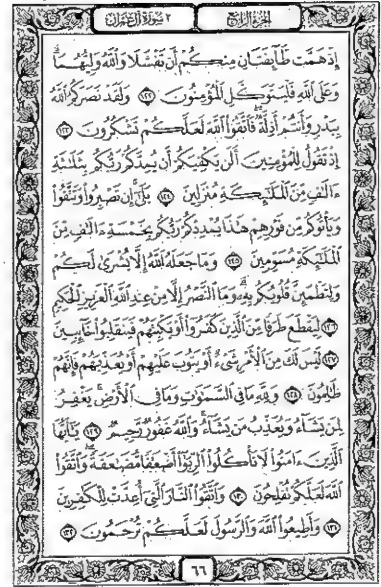 ٣ سورة آل عمران الجزء الرابع
إِذْ هَمَّت طَّآئِفَتَانِ مِنكُمْ أَن تَفْشَلَا وَٱللَّهُ وَلِيُّهُمَا ۗ
وَعَلَى ٱللَّهِ فَلْيَتَوَكَّلِ ٱلْمُؤْمِنُونَ ١٢٢ وَلَقَدْ نَصَرَكُمُ ٱللَّهُ
بِبَدْرٍ وَأَنتُمْ أَذِلَّةٌ ۖ فَٱتَّقُوا۟ ٱللَّهَ لَعَلَّكُمْ تَشْكُرُونَ ١٢٣
إِذْ تَقُولُ لِلْمُؤْمِنِينَ أَلَن يَكْفِيَكُمْ أَن يُمِدَّكُمْ رَبُّكُم بِثَلَٰثَةِ
ءَالَٰفٍ مِّنَ ٱلْمَلَٰٓئِكَةِ مُنزَلِينَ ١٢٤ بَلَىٰٓ ۚ إِن تَصْبِرُوا۟ وَتَتَّقُوا۟
وَيَأْتُوكُم مِّن فَوْرِهِمْ هَٰذَا يُمْدِدْكُمْ رَبُّكُم بِخَمْسَةِ ءَالَٰفٍ مِّنَ
ٱلْمَلَٰٓئِكَةِ مُسَوِّمِينَ ١٢٥ وَمَا جَعَلَهُ ٱللَّهُ إِلَّا بُشْرَىٰ لَكُمْ
وَلِتَطْمَئِنَّ قُلُوبُكُم بِهِۦ ۗ وَمَا ٱلنَّصْرُ إِلَّا مِنْ عِندِ ٱللَّهِ ٱلْعَزِيزِ ٱلْحَكِيمِ
١٢٦ لِيَقْطَعَ طَرَفًا مِّنَ ٱلَّذِينَ كَفَرُوٓا۟ أَوْ يَكْبِتَهُمْ فَيَنقَلِبُوا۟ خَآئِبِينَ
١٢٧ لَيْسَ لَكَ مِنَ ٱلْأَمْرِ شَىْءٌ أَوْ يَتُوبَ عَلَيْهِمْ أَوْ يُعَذِّبَهُمْ فَإِنَّهُمْ
ظَٰلِمُونَ ١٢٨ وَلِلَّهِ مَا فِى ٱلسَّمَٰوَٰتِ وَمَا فِى ٱلْأَرْضِ ۚ يَغْفِرُ
لِمَن يَشَآءُ وَيُعَذِّبُ مَن يَشَآءُ ۚ وَٱللَّهُ غَفُورٌ رَّحِيمٌ ١٢٩ يَٰٓأَيُّهَا
ٱلَّذِينَ ءَامَنُوا۟ لَا تَأْكُلُوا۟ ٱلرِّبَوٰٓا۟ أَضْعَٰفًا مُّضَٰعَفَةً ۖ وَٱتَّقُوا۟
ٱللَّهَ لَعَلَّكُمْ تُفْلِحُونَ ١٣٠ وَٱتَّقُوا۟ ٱلنَّارَ ٱلَّتِىٓ أُعِدَّتْ لِلْكَٰفِرِينَ
١٣١ وَأَطِيعُوا۟ ٱللَّهَ وَٱلرَّسُولَ لَعَلَّكُمْ تُرْحَمُونَ ١٣٢
٦٦